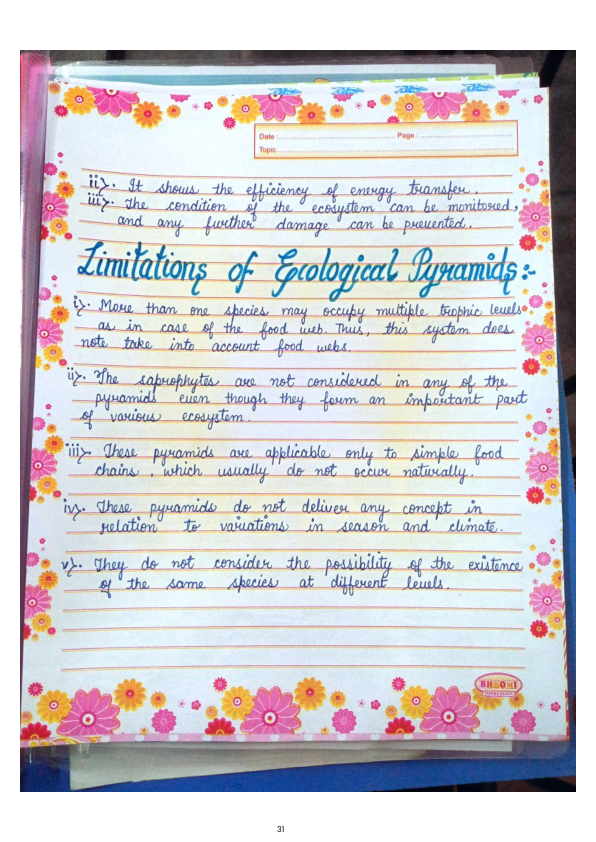 Date :
Page :
Topic
ii>. It shows the efficiency of energy transfer.
iii>. The condition of the ecosystem can be monitored,
and any further damage can be prevented.
Limitations of Ecological Pyramids:-
i>. More than one species may occupy multiple trophic levels
as in case of the food web. Thus, this system does
note take into account food webs.
ii>. The saprophytes are not considered in any of the
pyramids even though they form an important part
of various ecosystem.
iii>. These pyramids are applicable only to simple food
chains, which usually do not occur naturally.
iv>. These pyramids do not deliver any concept in
relation to variations in season and climate.
v>. They do not consider the possibility of the existence
of the same species at different levels.
BHOOMI
IMPRESSION
31